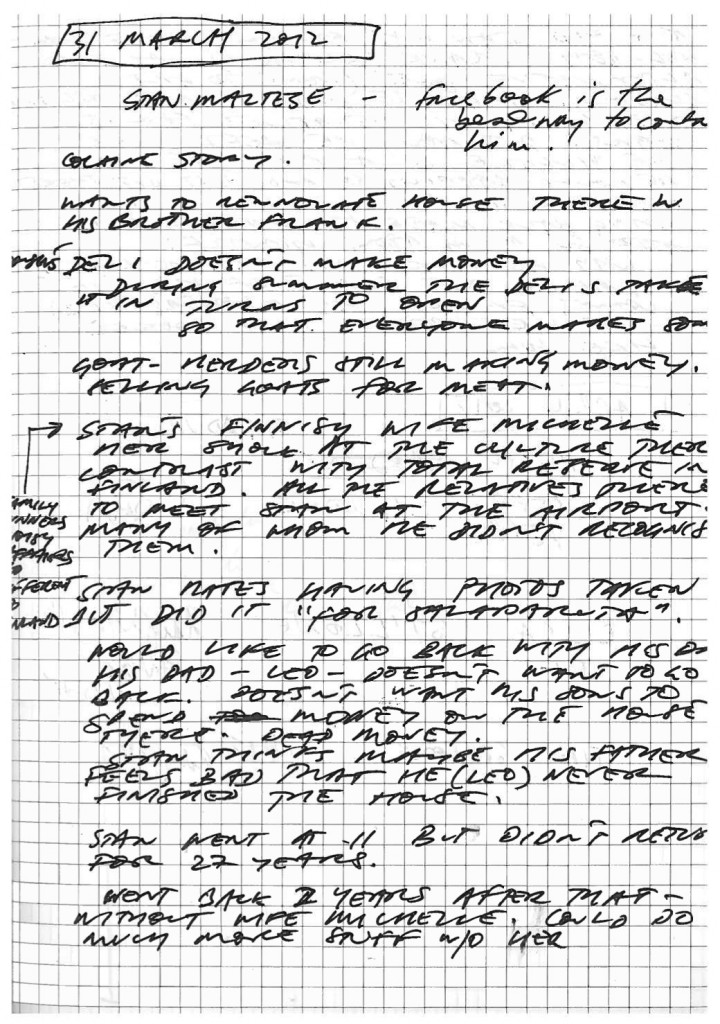 31 MARCH 2012
STAN MALTESE - facebook is the
best way to conta
him.
COCAINE STORY.
WANTS TO RENNOVATE HOUSE THERE W
HIS BROTHER FRANK.
DELI DOESN'T MAKE MONEY
DURING SUMMER THE DELI'S TAKE
IT IN TURNS TO OPEN
SO THAT EVERYONE MAKES SOM
GOAT-HERDERS STILL MAKING MONEY.
SELLING GOATS FOR MEAT.
STAN'S FINNISH WIFE MICHELLE
HER SHOCK AT THE CULTURE THER
CONTRAST WITH TOTAL RESERVE IN
FINLAND. ALL THE RELATIVES THERE
TO MEET STAN AT THE AIRPORT.
MANY OF WHOM HE DIDN'T RECOGNIS
THEM.
AMILY
DINNERS
NOISY
DIFFERENT
TO
INLAND
STAN HATES HAVING PHOTOS TAKEN
BUT DID IT "FOR SALAPARUTA".
WOULD LIKE TO GO BACK WITH HIS DA
HIS DAD - LEO - DOESN'T WANT TO GO
BACK. DOESN'T WANT HIS SONS TO
SPEND MONEY ON THE HOUSE
THERE. DEAD MONEY.
STAN THINKS MAYBE HIS FATHER
FEELS BAD THAT HE (LEO) NEVER
FINISHED THE HOUSE.
STAN WENT AT 11 BUT DIDN'T RETU
FOR 27 YEARS.
WENT BACK 2 YEARS AFTER THAT -
WITHOUT WIFE MICHELLE. COULD DO
MUCH MORE STUFF W/O HER